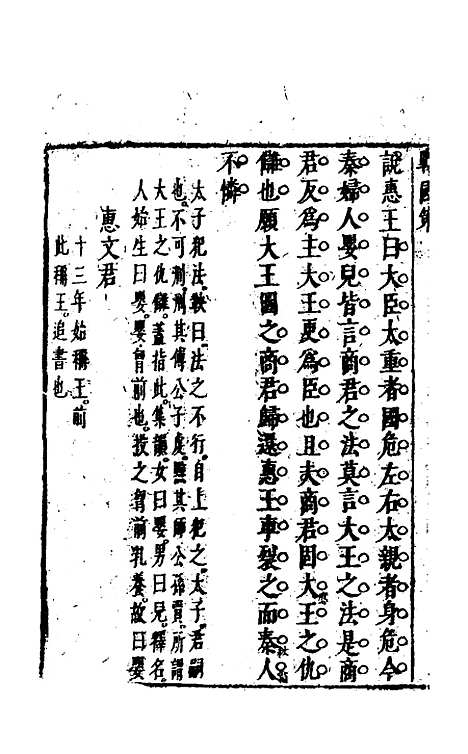 戰國策
說惠王曰大臣太重者國危左右太親者身危今
秦婦人嬰兒皆言商君之法莫言大王之法是商
君反爲主大王更爲臣也且夫商君固大王之仇
讎也願大王圖之商君歸還惠王車裂之而秦人
不憐
太子犯法鞅曰法之不行自上犯之太子君嗣
也不可刑刑其傅公子虔黥其師公孫賈所謂
大王之仇讎蓋指此集韻女曰嬰男曰兒釋名
人始生曰嬰嬰胷前也投之胷前乳養故曰嬰
惠文君
十三年始稱王前
此稱王追書也